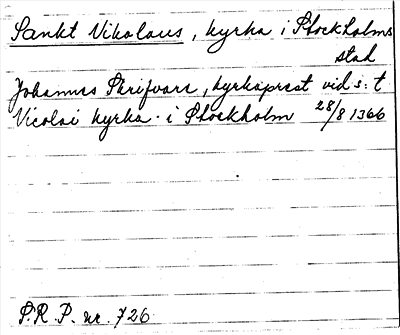 Sankt Nikolaus, kyrka i Stockholms
stad
Johannes Skrifvare, kyrkoprest vid s:t
Nicolai kyrka i Stockholm 28/8 1366
S.R.P. nr. 726